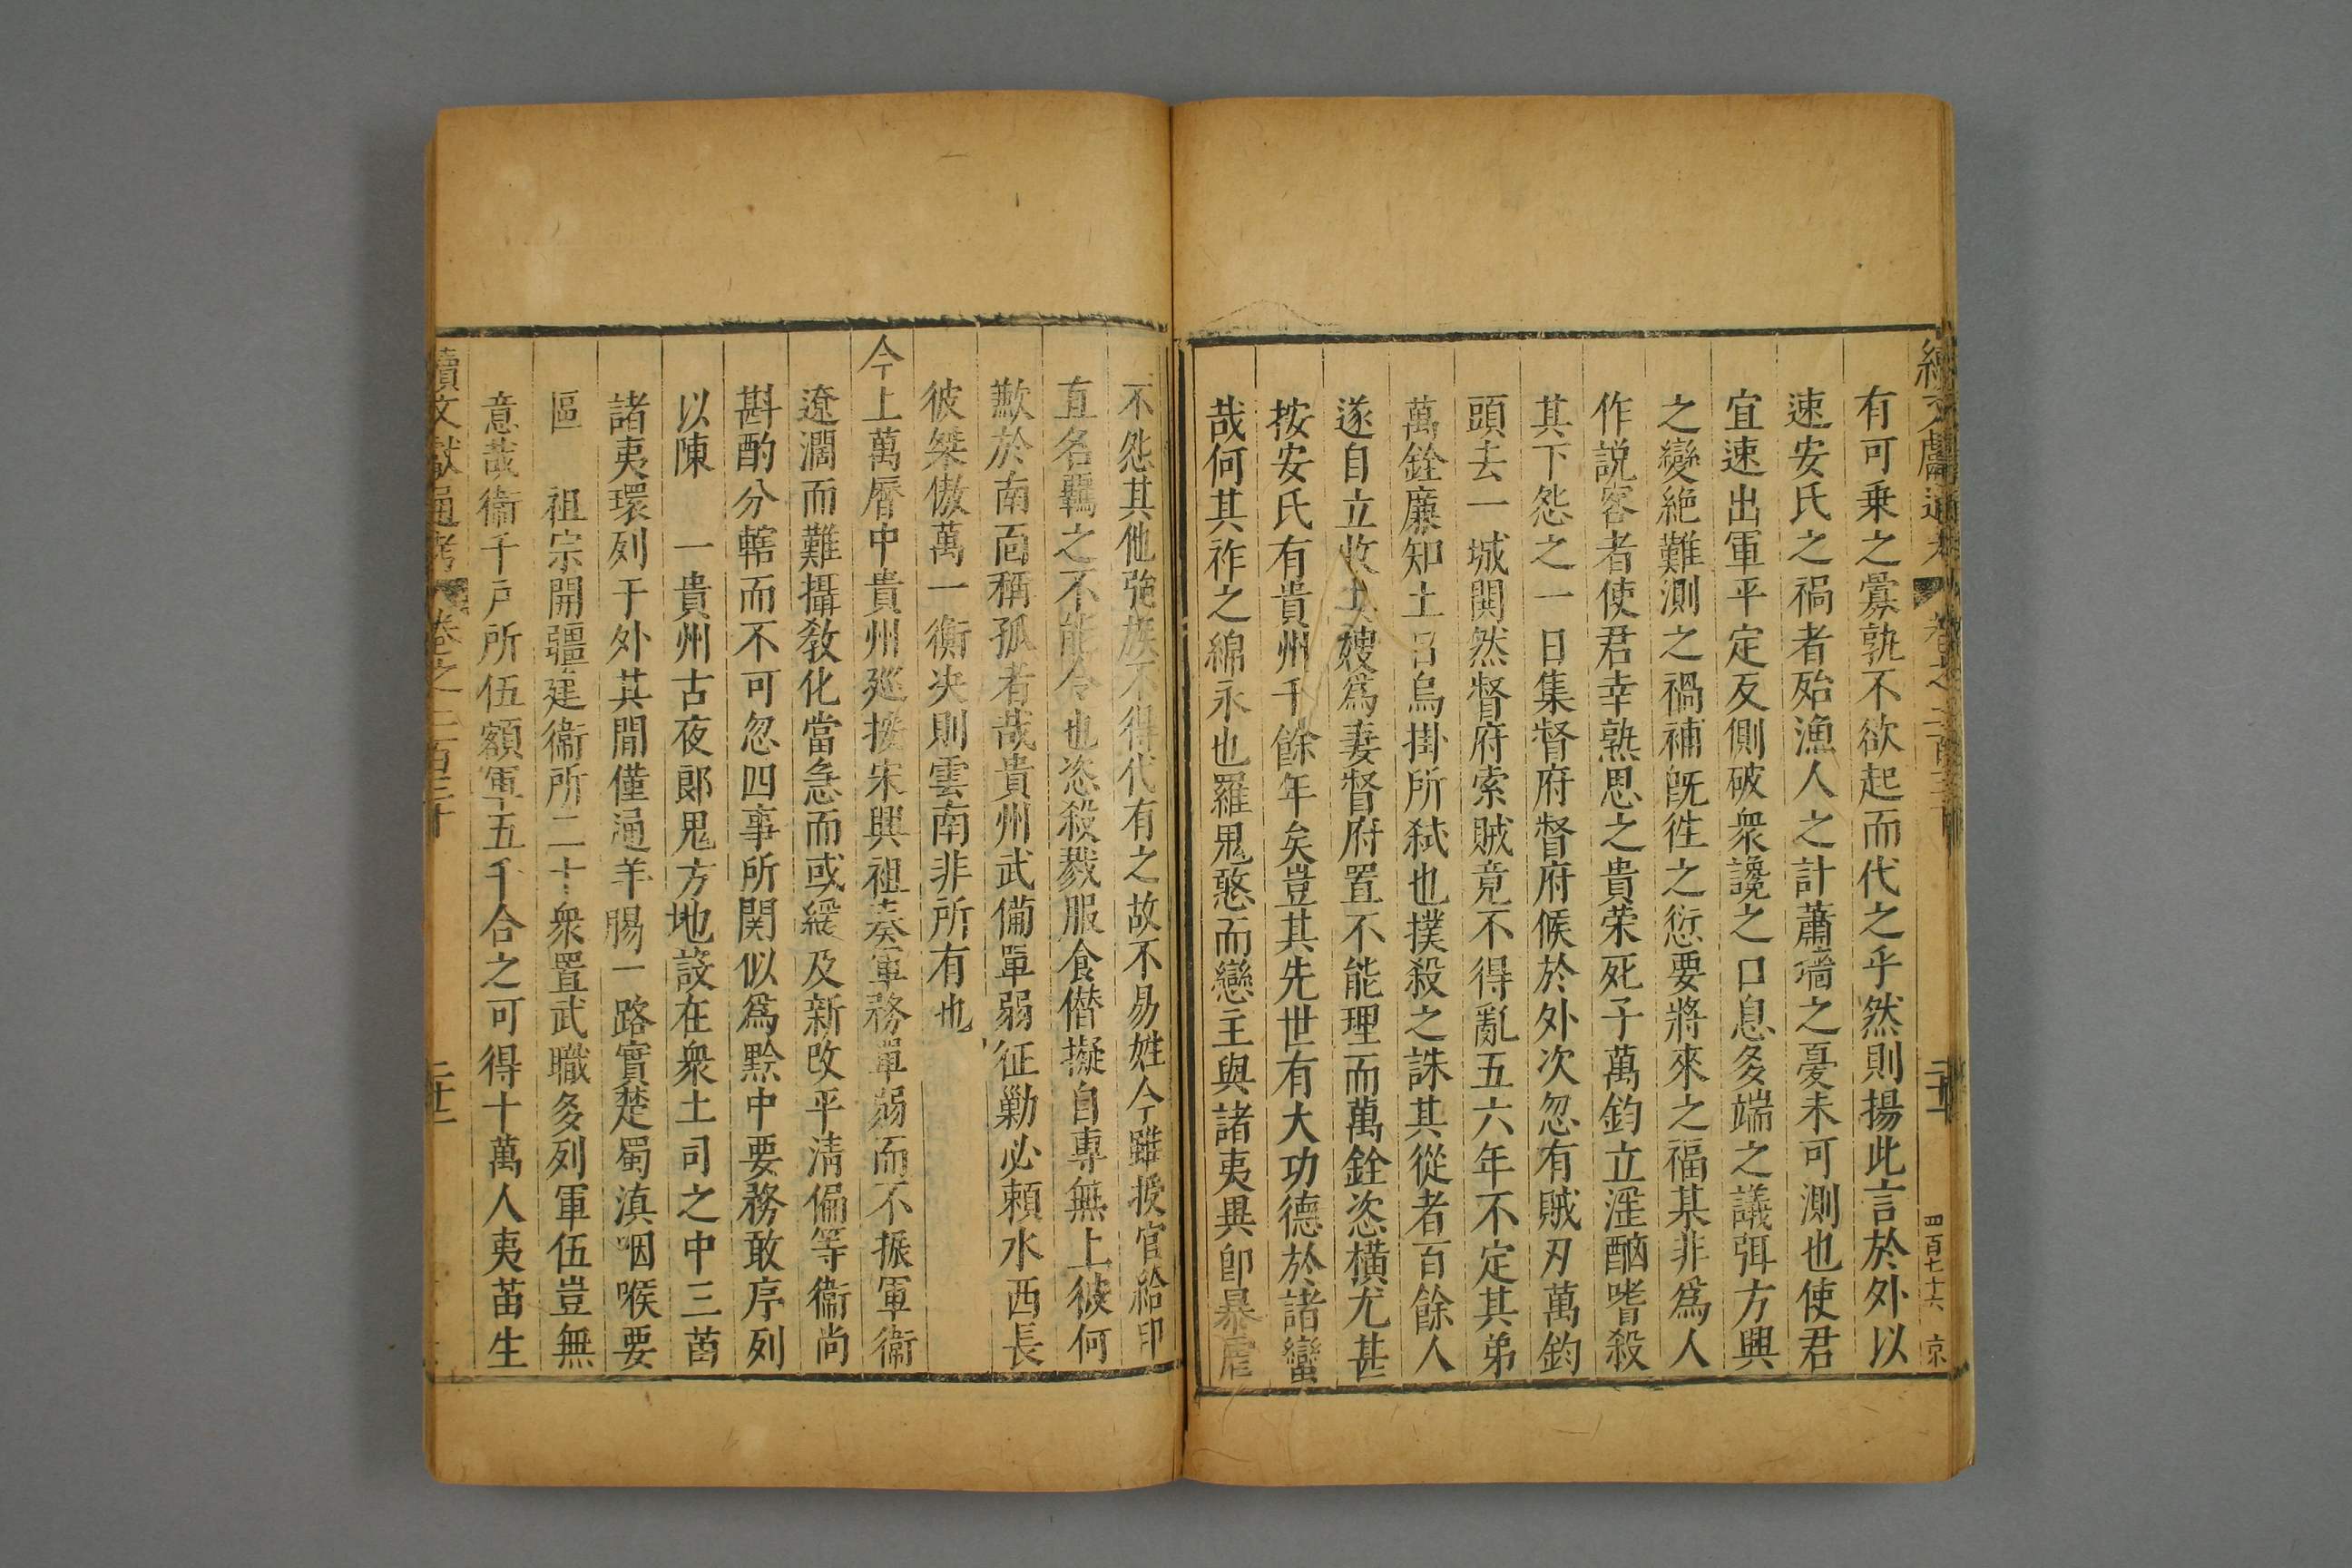 續文獻通考 卷之二百三十 二十一 四百七十六 京
有可乗之釁孰不欲起而代之乎然則揚此言於外以
速安氏之禍者殆漁人之計蕭墻之憂未可測也使君
宜速出軍平定反側破衆讒之口息多端之議弭方興
之變絶難測之禍補旣徃之愆要將來之福某非爲人
作説客者使君幸熟思之貴荣死子萬鈞立滛酗嗜殺
其下怨之一日集督府督府候於外次忽有賊刃萬鈞
頭去一城閧然督府索賊竟不得亂五六年不定其弟
萬銓廉知土官烏掛所弑也撲殺之誅其從者百餘人
遂自立收其嫂爲妻督府置不能理而萬銓恣橫尤甚
按安氏有貴州千餘年矣豈其先世有大功德於諸蠻
哉何其祚之綿永也羅鬼憨而戀主與諸夷異卽暴虐
不怨其他強族不得代有之故不易姓今雖授官給印
直名羈之不能令也恣殺戮服食僣擬自專無上彼何
歉於南面稱孤者哉貴州武備單弱征勦必頼水西長
彼桀傲萬一衡决則雲南非所有也
今上萬曆中貴州廵按宋興祖奏軍務單弱而不振軍衞
遼濶而難攝敎化當急而或緩及新改平清偏等衞尚
斟酌分轄而不可忽四事所関似爲黔中要務敢序列
以陳 一貴州古夜郎鬼方地設在衆土司之中三苗
諸夷環列于外其間僅通羊腸一路實楚蜀滇咽喉要
區 祖宗開疆建衞所二十衆置武職多列軍伍豈無
意哉衞千戸所伍額軍五千合之可得十萬人夷苗生
續文獻通考 卷之二百三十 二十二